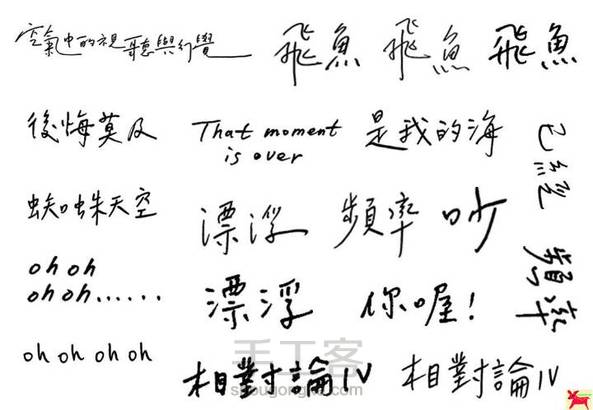 空氣中的視聽與幻覺
飛魚 飛魚 飛魚
後悔莫及
That moment
is over
是我的海
已經
蜘蛛天空
漂浮 頻率 吵
oh oh
oh oh......
漂浮 你喔！
頻率
oh oh oh oh
相對論IV 相對論IV
手工客
shougongke.com